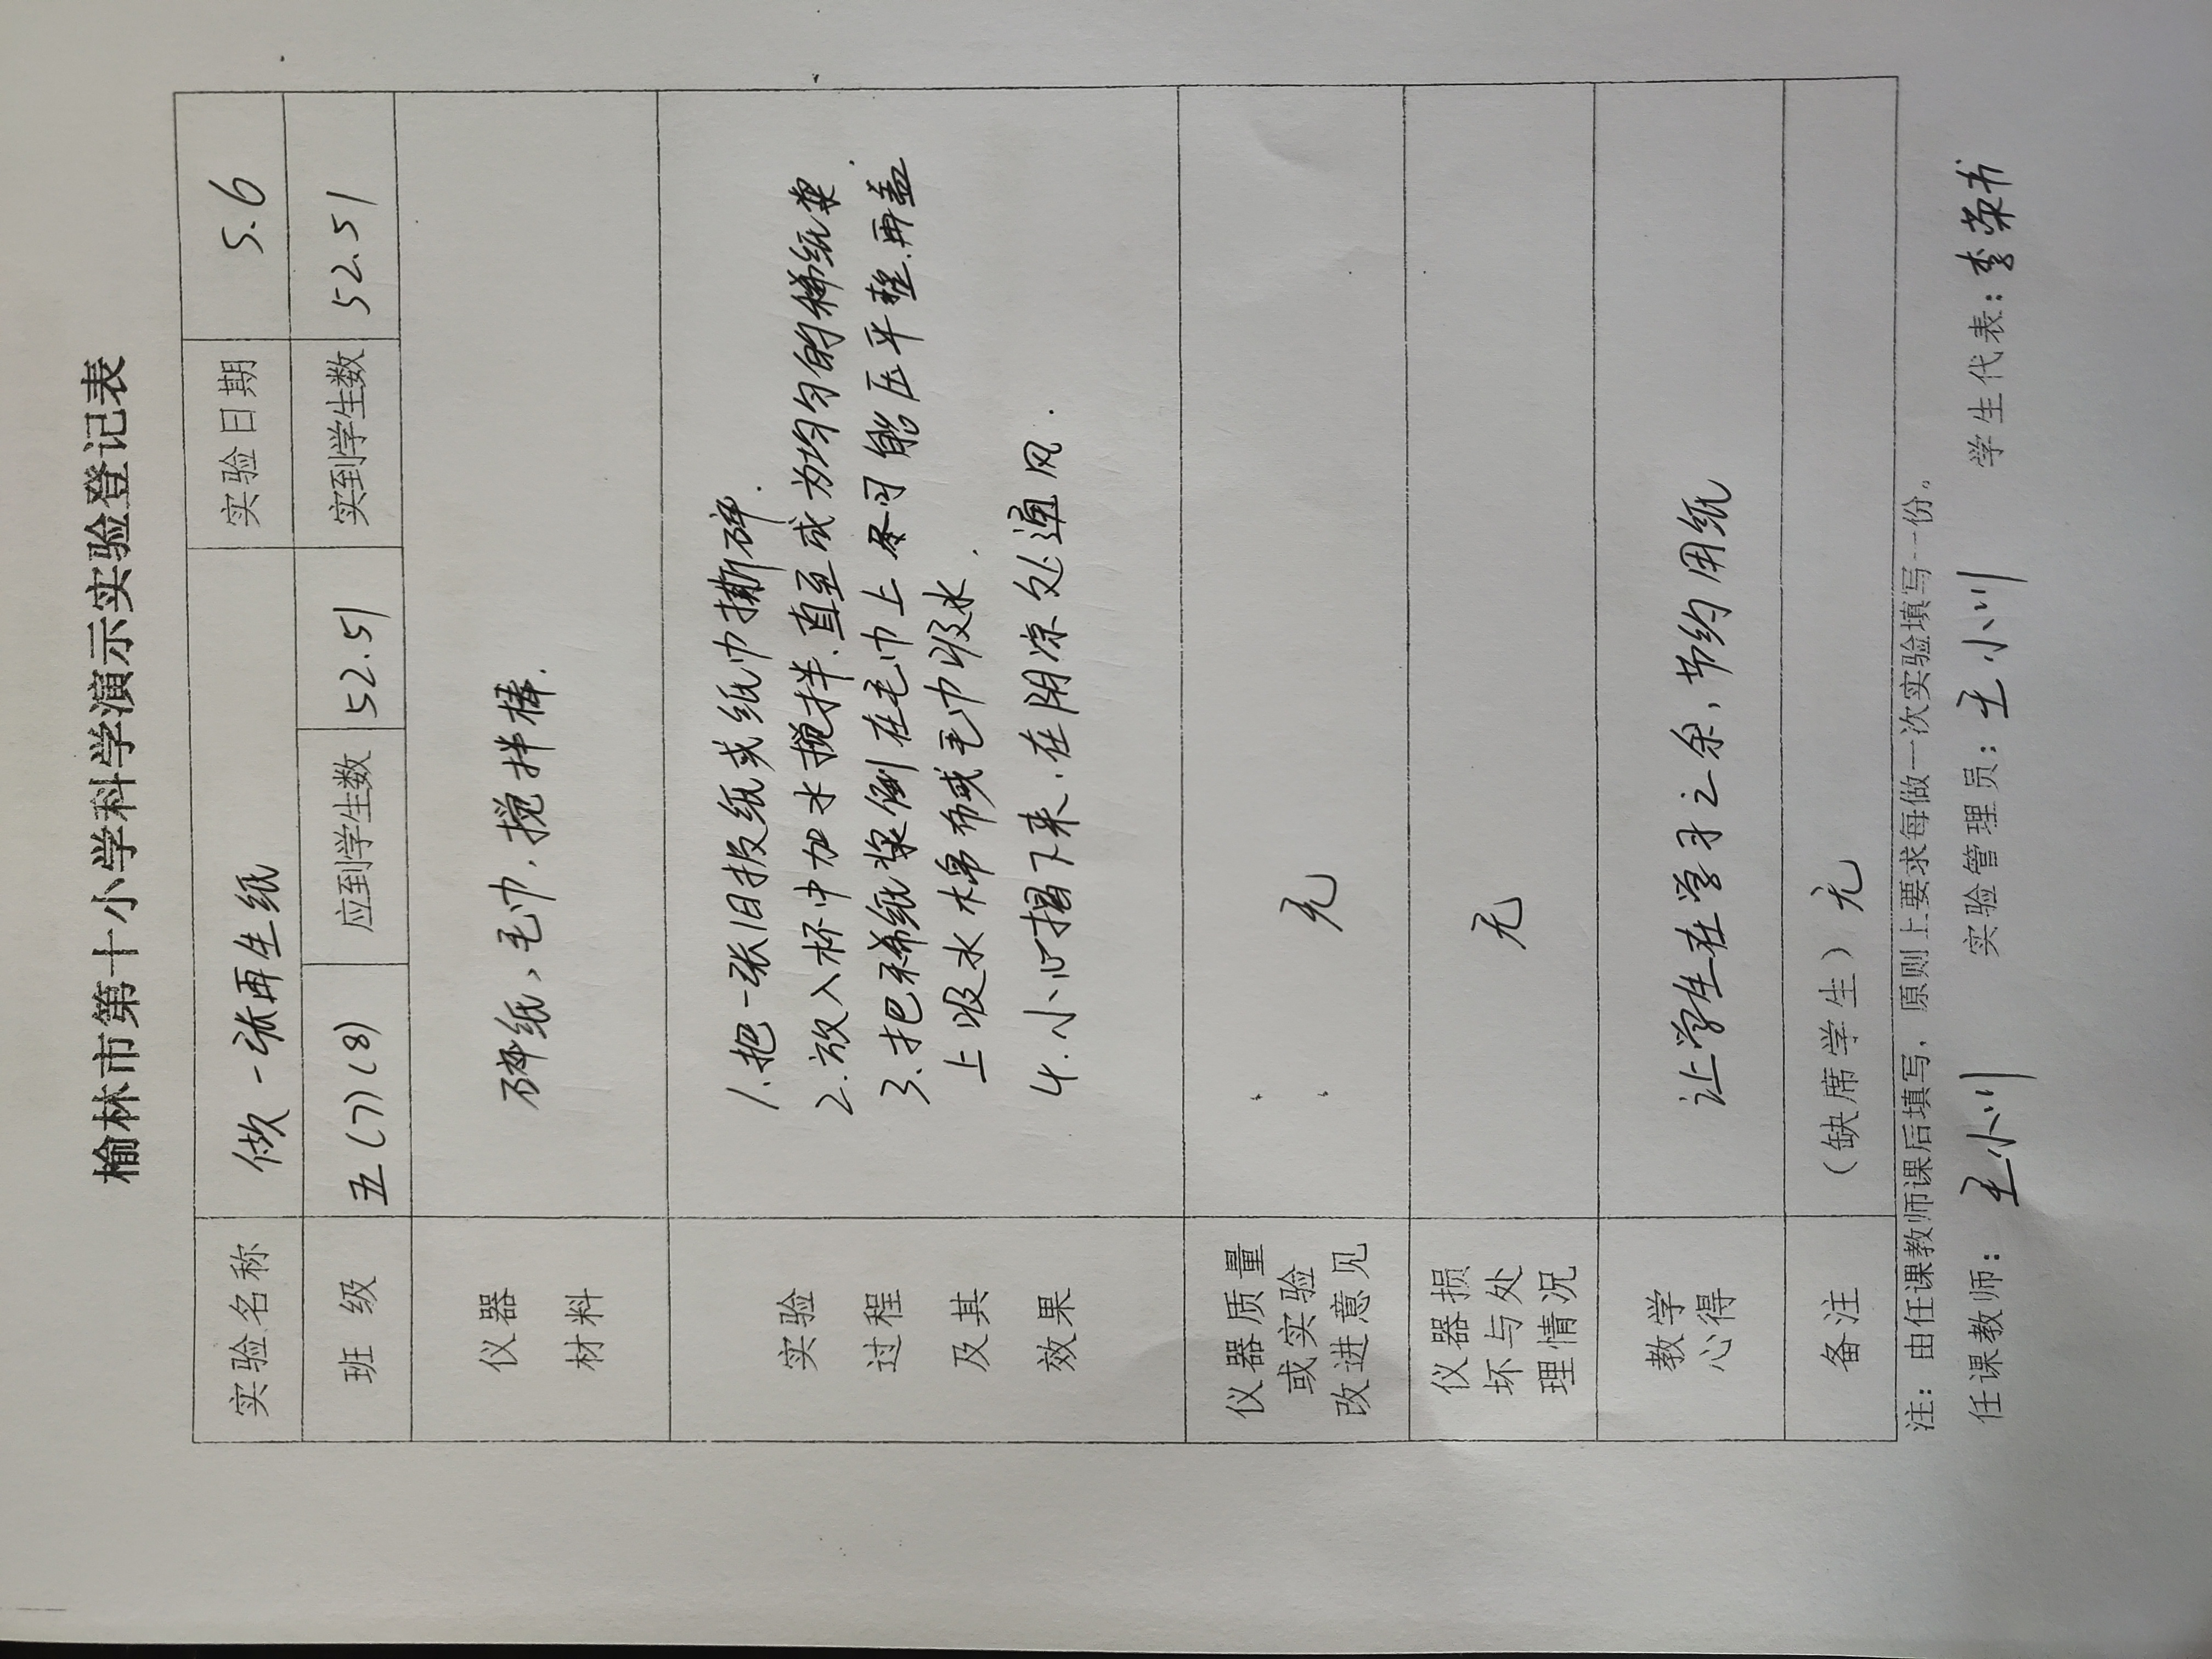 榆林市第十小学科学演示实验登记表
实验名称 做一张再生纸 实验日期 5.6
班 级 五(7)(8) 应到学生数 52.51 实到学生数 52.51
仪器
材料
碎纸、毛巾、搅拌棒.
实验
过程
及其
效果
1.把一张旧报纸或纸巾撕碎.
2.放入杯中加水搅拌.直至成为均匀的稀纸浆.
3.把稀纸浆倒在毛巾上尽可能压平整.再盖
上吸水棉布或毛巾吸水.
4.小心揭下来.在阴凉处通风.
仪器质量
或实验
改进意见
无
仪器损
坏与处
理情况
无
教学
心得
让学生在学习之余,节约用纸
备注 (缺席学生) 无
注：由任课教师课后填写，原则上要求每做一次实验填写一份。
任课教师： 王小川 实验管理员：王小川 学生代表：李荣书